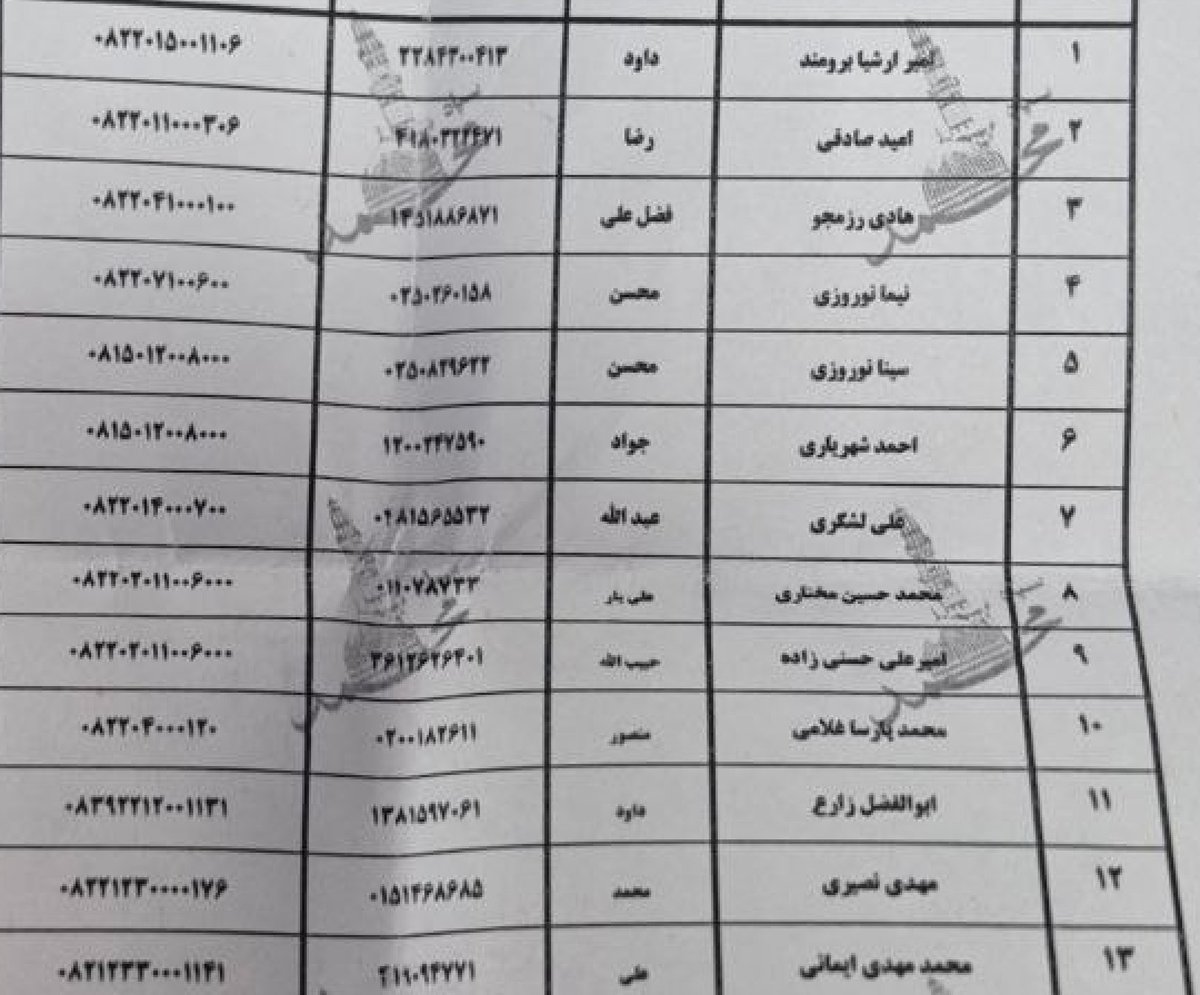 ۱ امیر ارشیا برومند داود ۲۲۸۴۳۰۰۴۱۳ ۰۸۲۲۰۱۵۰۰۱۱۰۶
۲ امید صادقی رضا ۰۸۲۲۰۱۱۰۰۰۳۰۶
۳ هادی رزمجو فضل علی ۱۴۵۱۸۸۶۸۷۱ ۰۸۲۲۰۴۱۰۰۰۱۰۰
۴ نیما نوروزی محسن ۰۲۵۰۲۶۰۱۵۸ ۰۸۲۲۰۷۱۰۰۶۰۰
۵ سینا نوروزی محسن ۰۲۵۰۸۲۹۶۲۲ ۰۸۱۵۰۱۲۰۰۸۰۰۰
۶ احمد شهریاری جواد ۱۲۰۰۲۴۷۵۹۰ ۰۸۱۵۰۱۲۰۰۸۰۰۰
۷ علی لشگری عبدالله ۰۲۸۱۵۶۵۵۳۲ ۰۸۲۲۰۱۴۰۰۰۷۰۰
۸ محمد حسین مختاری علی یار ۰۸۲۲۰۲۰۱۱۰۰۶۰۰۰
۹ امیرعلی حسنی زاده حبیب الله ۰۸۲۲۰۲۰۱۱۰۰۶۰۰۰
۱۰ محمد پارسا غلامی منصور ۰۲۰۰۱۸۲۶۱۱ ۰۸۲۲۰۴۰۰۰۱۲۰
۱۱ ابوالفضل زارع داود ۱۳۸۱۵۹۷۰۶۱ ۰۸۳۹۲۲۱۲۰۰۱۱۳۱
۱۲ مهدی نصیری محمد ۰۱۵۱۴۶۸۶۸۵ ۰۸۲۲۱۲۳۰۰۰۰۱۷۶
۱۳ محمد مهدی ایمانی علی ۰۸۲۱۲۳۳۰۰۰۱۱۴۱